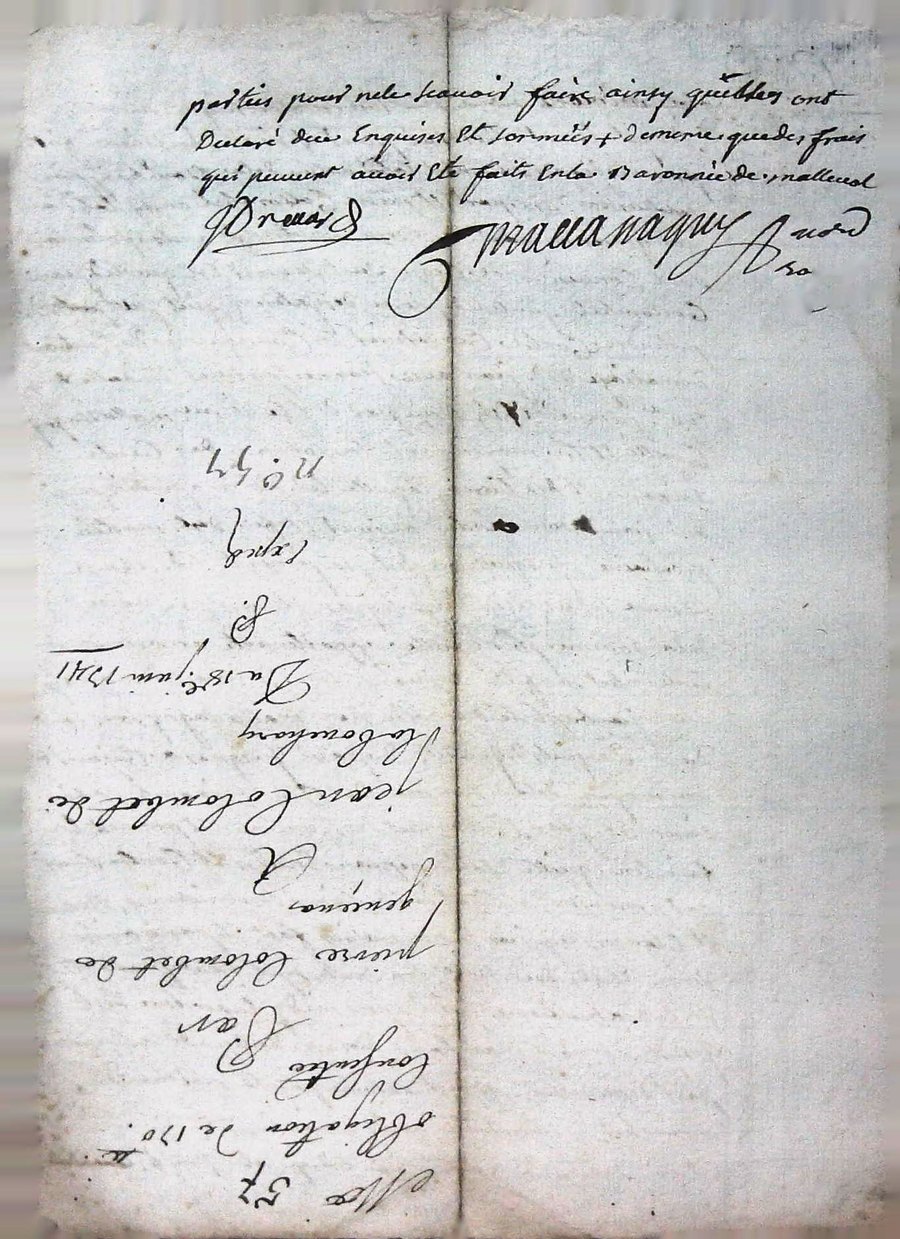 parties pour ne le scavoir faire ainsy quelles ont
Declaré deue Enquises Et sommées + de meme que des frais
qui peuvent avoir Eté faits En la Baronnie de malleval
Drevard
not Ro
57
obligation de 170 ll
Consentie
Par
pierre Colombet de
A
jean Colombet de
la bouchary
Du 18e juin 1741
Exped
n°. 57